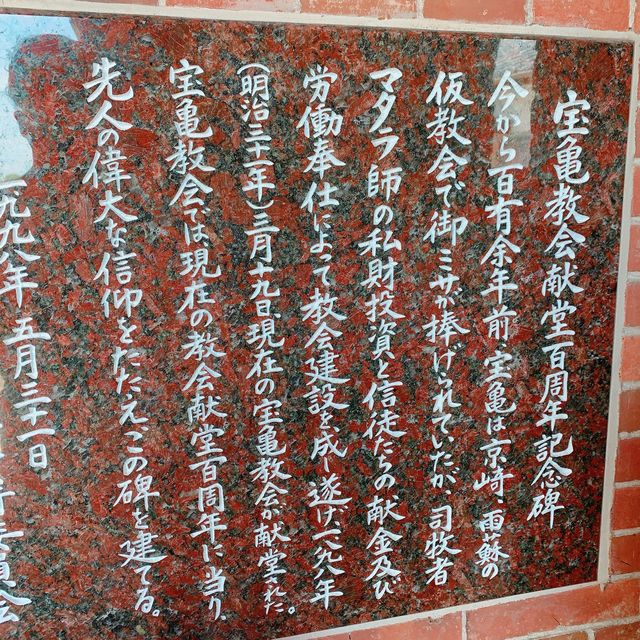 宝亀教会献堂百周年記念碑
今から百有余年前、宝亀は京崎・雨蘇の
仮教会で御ミサが捧げられていたが、司牧者
マタラ師の私財投資と信徒たちの献金及び
労働奉仕によって教会建設を成し遂げ、一八九八年
(明治三十一年)三月十九日、現在の宝亀教会が献堂された。
宝亀教会では現在の教会献堂百周年に当り、
先人の偉大な信仰をたたえ、この碑を建てる。
一九九八年 五月三十一日
委員会